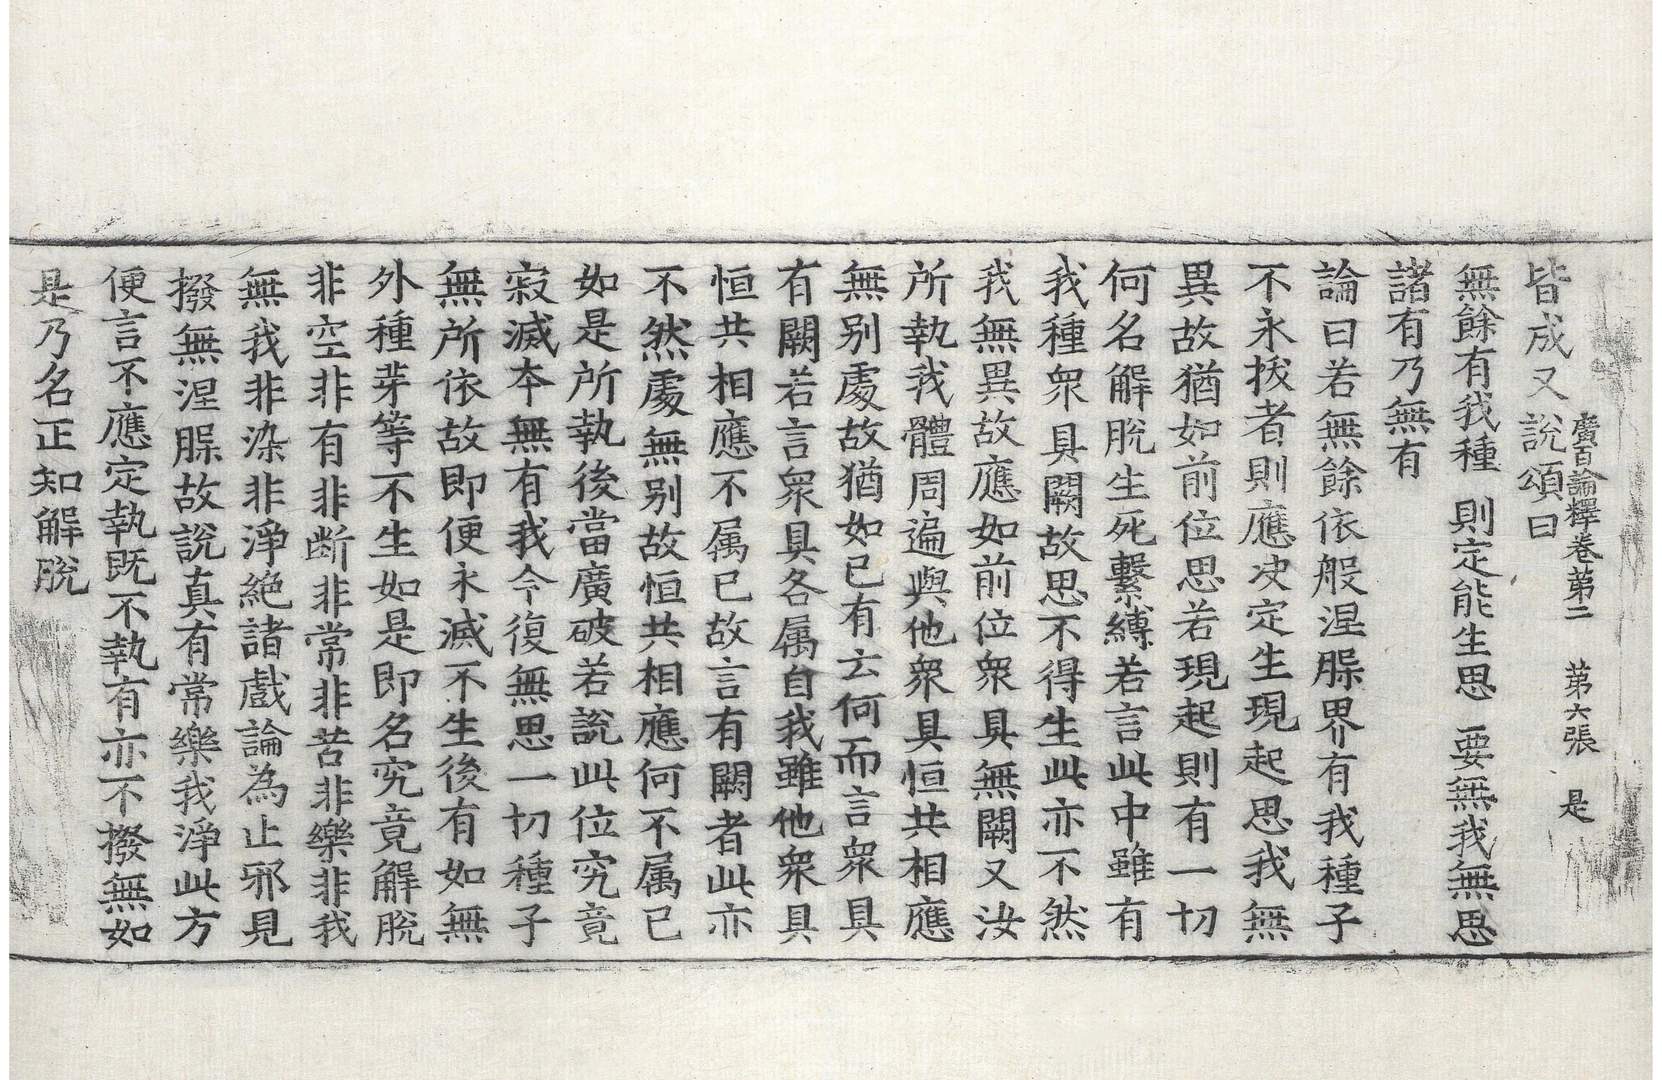 廣百論釋卷第二　第六張　是
皆成又說頌曰
無餘有我種　則定能生思　要無我無思
諸有乃無有
論曰若無餘依般涅脲界有我種子
不永拔者則應决定生現起思我無
異故猶如前位思若現起則有一切
何名解脫生死繫縛若言此中雖有
我種衆具闕故思不得生此亦不然
我無異故應如前位衆具無闕又汝
所執我體周遍與他衆具恒共相應
無別處故猶如已有云何而言衆具
有闕若言衆具各属自我雖他衆具
恒共相應不属已故言有闕者此亦
不然處無別故恒共相應何不属已
如是所執後當廣破若說此位究竟
寂滅本無有我今復無思一切種子
無所依故即便永滅不生後有如無
外種芽等不生如是即名究竟解脫
非空非有非断非常非苦非樂非我
無我非染非淨絶諸戲論為止邪見
撥無涅脲故說真有常樂我淨此方
便言不應定執既不執有亦不撥無如
是乃名正知解脫